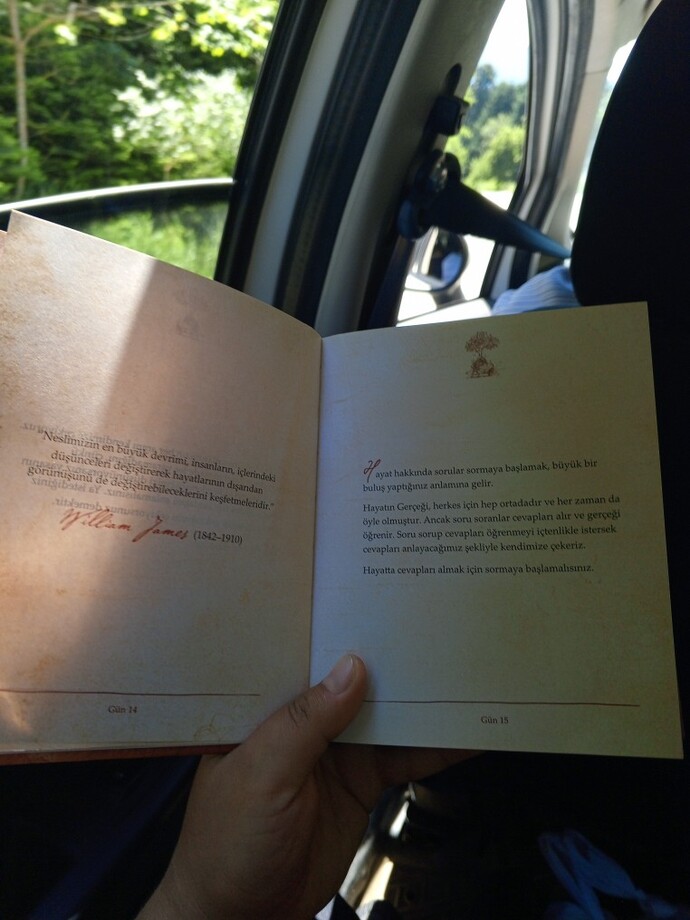 "Neslimizin en büyük devrimi, insanların, içlerindeki
düşünceleri değiştirerek hayatlarının dışarıdan
görünüşünü de değiştirebileceklerini keşfetmeleridir."
William James (1842–1910)
Gün 14
Hayat hakkında sorular sormaya başlamak, büyük bir
buluş yaptığınız anlamına gelir.
Hayatın Gerçeği, herkes için hep ortadadır ve her zaman da
öyle olmuştur. Ancak soru soranlar cevapları alır ve gerçeği
öğrenir. Soru sorup cevapları öğrenmeyi içtenlikle istersek
cevapları anlayacağımız şekliyle kendimize çekeriz.
Hayatta cevapları almak için sormaya başlamalısınız.
Gün 15